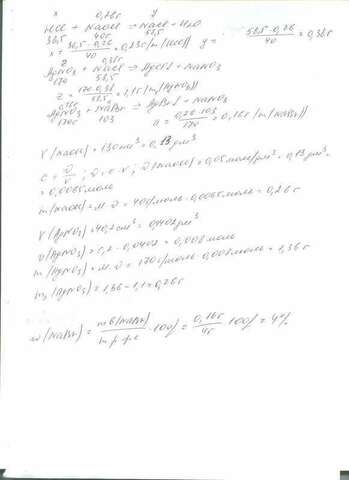 x 0,26г y
HCl + NaOH → NaCl + H2O
36,5 40г 58,5
x = 36,5·0,26/40 = 0,23г/m(HCl)/ y = 58,5·0,26/40 = 0,38г
z 0,38г
AgNO3 + NaCl → AgCl↓ + NaNO3
170 58,5
z = 170·0,38/58,5 = 1,1г/m(AgNO3)/
0,26г
AgNO3 + NaBr → AgBr↓ + NaNO3
170г 103
u = 0,26·103/170 = 0,16г/m(NaBr)/
V(NaOH) = 130см³ = 0,13дм³
c = ν/V; ν = c·V; ν(NaOH) = 0,05моль/дм³·0,13дм³ =
= 0,0065моль
m(NaOH) = M·ν = 40г/моль·0,0065моль = 0,26г
V(AgNO3) = 40,2см³ = 0,0402дм³
ν(AgNO3) = 0,2·0,0402 = 0,008моль
m(AgNO3) = M·ν = 170г/моль·0,008моль = 1,36г
m2(AgNO3) = 1,36-1,1 = 0,26г
ω(NaBr) = mв(NaBr)/m р-ра ·100% = 0,16г/4г ·100% = 4%